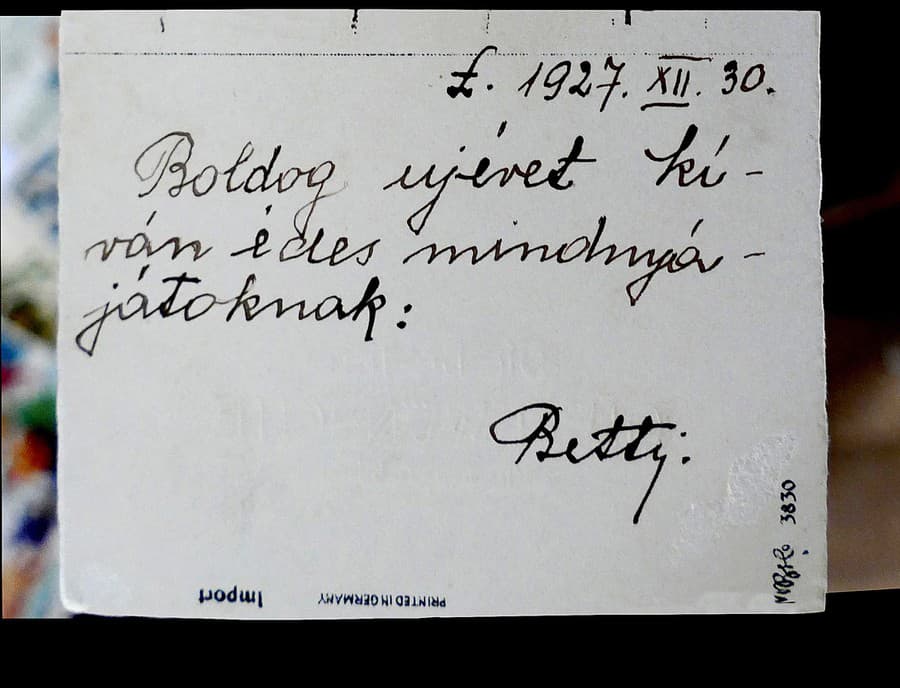 Ł. 1927. XII. 30.
Boldog ujévet kí-
ván édes mindnyá-
játoknak:
Betty.
3830
PRINTED IN GERMANY
Import